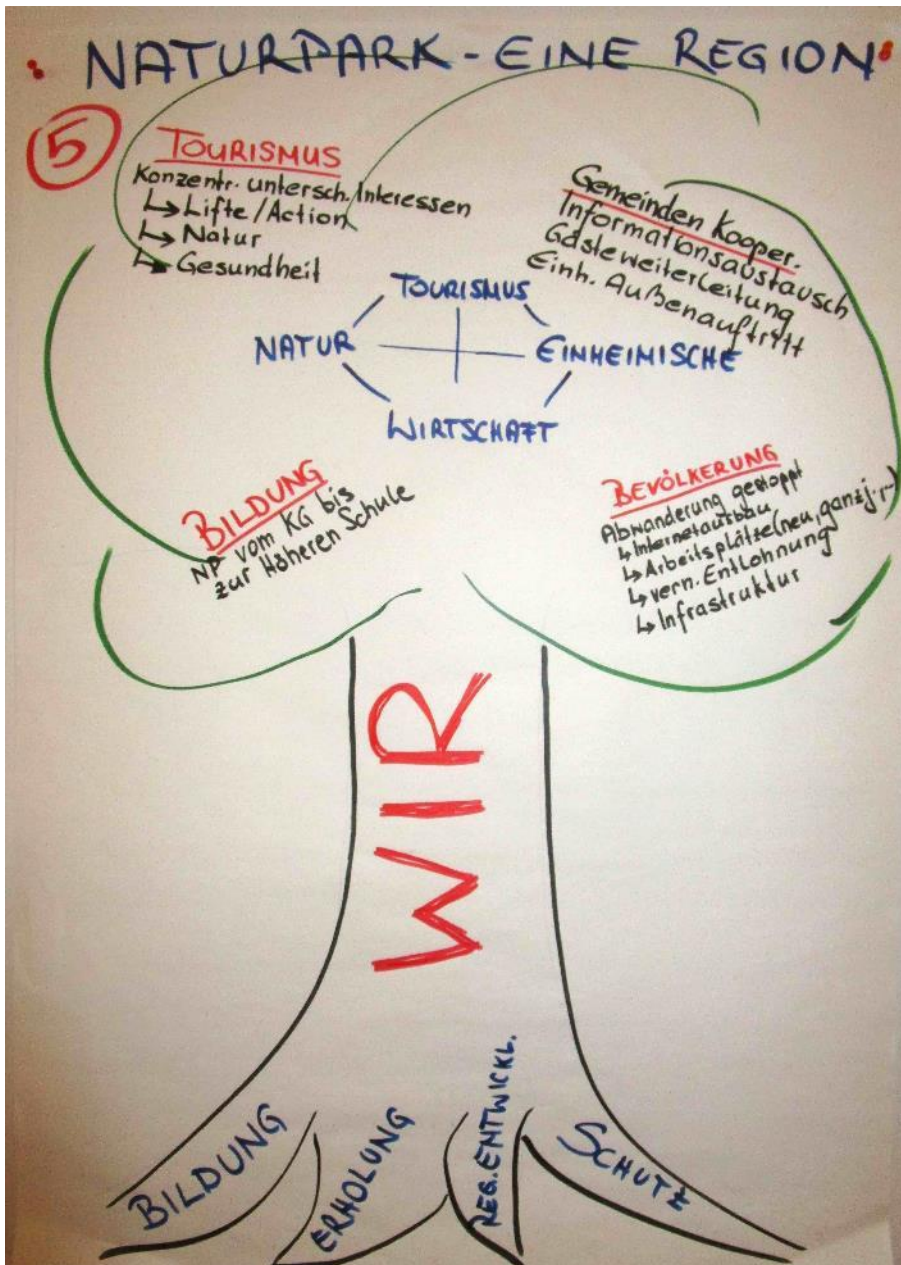 NATURPARK - EINE REGION
5
TOURISMUS
Konzentr. untersch. Interessen
↳ Lifte/Action
↳ Natur
↳ Gesundheit
Gemeinden Kooper.
Informationsaustausch
Gästeweiterleitung
Einh. Außenauftritt
TOURISMUS
NATUR
EINHEIMISCHE
WIRTSCHAFT
BILDUNG
NP vom KG bis
zur Höheren Schule
BEVÖLKERUNG
Abwanderung gestoppt
↳ Internetausbau
↳ Arbeitsplätze (neu, ganzj., ...)
↳ vern. Entlohnung
↳ Infrastruktur
WIR
BILDUNG
ERHOLUNG
REG. ENTWICKL.
SCHUTZ